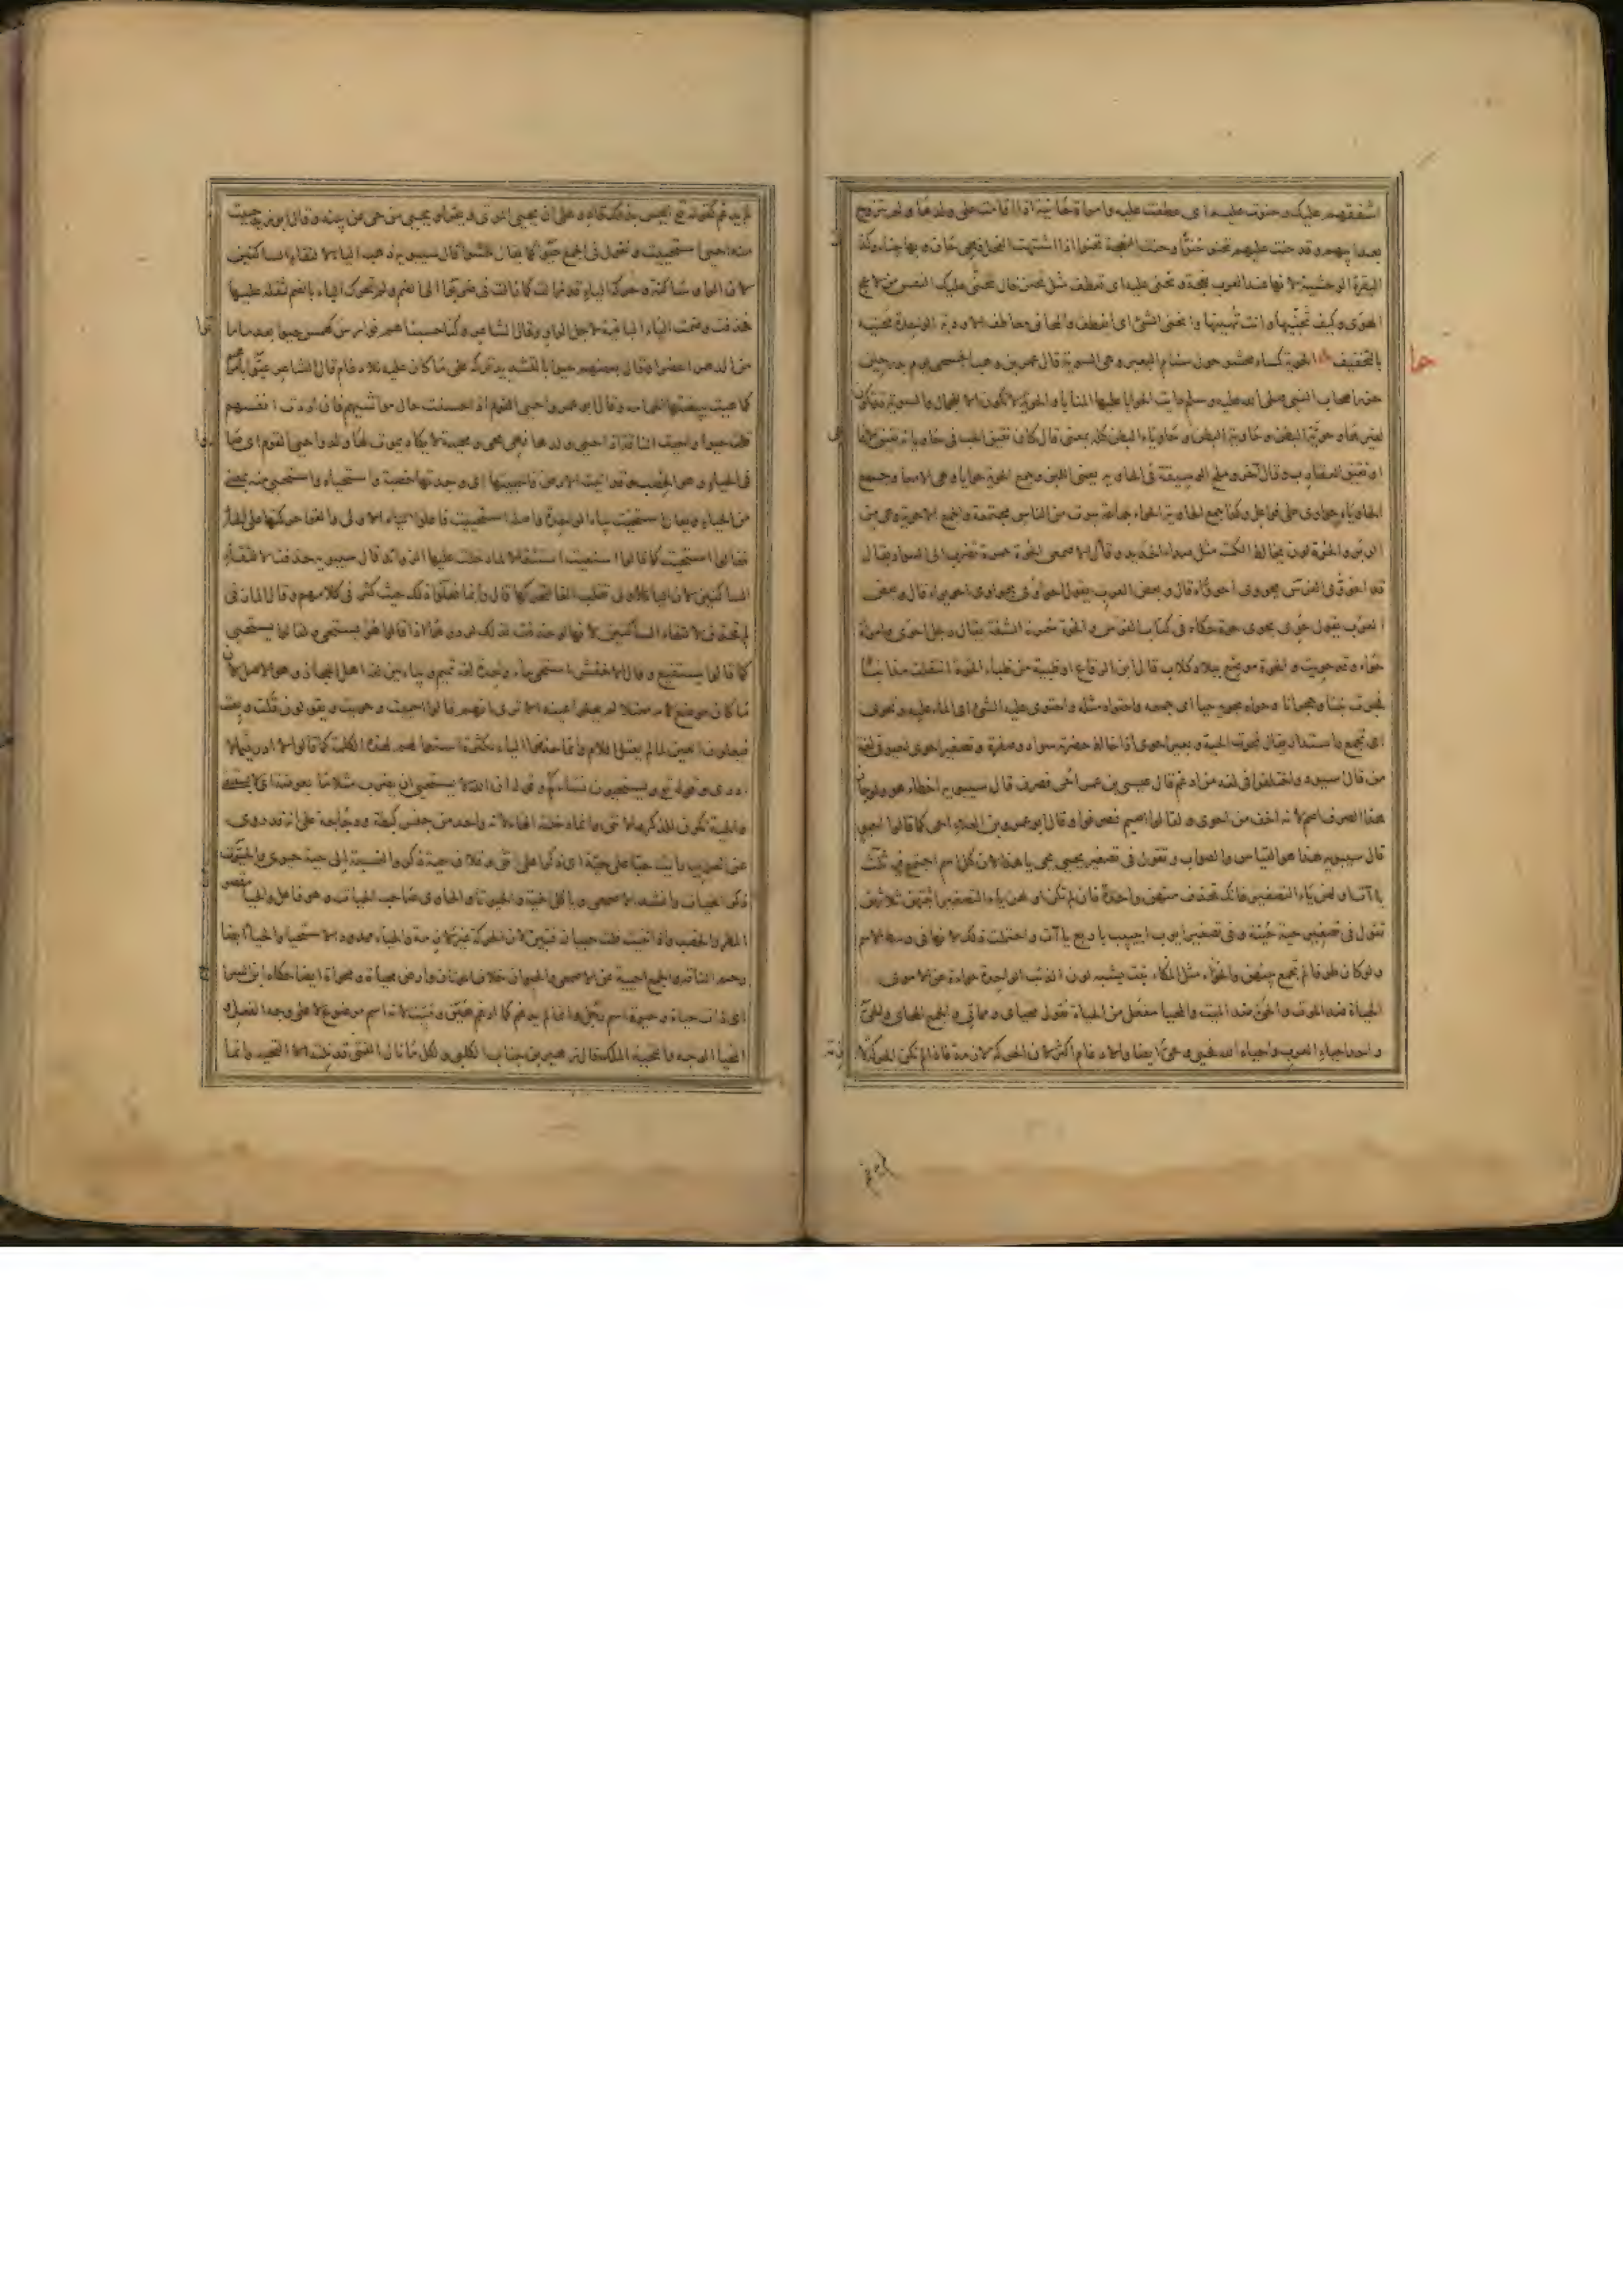 اشفقهم عليك وحنوت عليه اى عطفت عليه وامراة حانية اذا اقامت على ولدها ولم تتزوج
بعد ابيهم وقد حنت عليهم تحنو حنوا وحنت النعجة تحنو اذا اشتهت الفحل فهى حان وبها حناء وكذ
البقرة الوحشية لانها عند العرب نعجة وتحنى عليه اى تعطف مثل تحنن قال تحنى عليك النفس من لاعج
الهوى وكيف تحنيها وانت تهينها وانحنى الشئ اى انعطف والحانى
بالتخفيف حوا الحوية كساء محشو حول سنام البعير وهى السوية قال عمير بن وهب الجمحى يوم بدر حين
حزر اصحاب النبى صلى الله عليه وسلم رايت الحوايا عليها المنايا والحوية لا تكون الا للجمال والسوية قد تكون
لغيرها وحوية البطن وحاوية البطن وحاوياء البطن كله بمعنى قال كان نقيق الحب فى حاويائه نقيق الافا
او نقيق العقارب وقال آخر وملح الوسيقة فى الحاويه يعنى اللبن وجمع الحوية حوايا وهى الامعا وجمع
الحاوياء حواوى على فواعل وكذا جمع الحاوية الحواء جماعة بيوت من الناس مجتمعة والجمع الاحوية وهى من
الوبر والحوة لون يخالط الكمتة مثل صداء الحديد وقال الاصمعى الحوة حمرة تضرب الى السواد يقال
قد احووى الفرس يحووى احوواء قال وبعض العرب يقول احواوى يحواوى احويواء قال وبعض
العرب يقول حوى يحوى حوة حكاه فى كتاب الفرس والحوة سمرة الشفة يقال رجل احوى وامراة
حواء وقد حويت والحوة موضع ببلاد كلاب قال ابن الرقاع او ظبية من ظباء الحوة انتقلت مذانبا
فجرت نبتا وحجرانا وحواه يحويه حيا اى جمعه واحتواه مثله واحتوى على الشئ اى الما عليه وتحوى
اى تجمع واستدار يقال تحوت الحية وبعير احوى اذا خالط خضرته سواد وصفرة وتصغير احوى احيو فى لغة
من قال اسيود واختلفوا فى لغة من ادغم قال عيسى بن عمر احيى فصرف قال سيبويه اخطاء هو ولو جاز
هذا الصرف اصم لانه اخف من احوى ولقالوا اصيم فصرفوا وقال ابو عمرو بن العلاء احى كما قالوا احيو
قال سيبويه هذا هو القياس والصواب وتقول فى تصغير يحيى يحى يا هذا لان كل اسم اجتمع فيه ثلث
ياآت اولهن ياء التصغير فانك تحذف منهن واحدة فان لم تكن اولهن ياء التصغير اثبتهن ثلاثهن
تقول فى تصغير حية حيية وفى تصغير ايوب اييب باربع ياآت واحتملت ذلك لانها فى وسط الاسم
ولو كان طرفا لم تجمع بينهن والحواء مثل المكاء نبت يشبه لون الذئب الواحدة حواءة عن الاصمعى
الحياة ضد الموت والحى ضد الميت والمحيا مفعل من الحياة تقول محياى ومماتى والجمع المحاى والحى
واحد احياء العرب واحياه الله فحيى وحى ايضا والادغام اكثر لان الحركة لازمة فاذا لم تكن الحركة لا
حيا
لم يدغم كقوله تع اليس بذلك قادر على ان يحيى الموتى ويقرا ويحيى من حى عن بينة وقال ابو زيد حييت
منه احيى استحييت وتقول فى الجمع حيوا كما يقال خشوا قال سيبويه ذهبت اليا لالتقاء الساكنين
لان الواو ساكنة وحركة الياء قد زالت كما زالت فى ضربوا الى الضم ولم تحرك الياء بالضم لثقله عليها
فحذفت وضمت الياء الباقية لاجل الواو وقال الشاعر وكنا حسبنا هم فوارس كهمس حيوا بعد ماماتوا
من الدهر اعصرا وقال بعضهم حيوا بالتشديد تركه على ما كان عليه للادغام قال الشاعر عيوا بامرهم
كما عيت ببيضتها الحمامه وقال ابو عمرو احيى القوم اذ احسنت حال مواشيهم فان اردت انفسهم
قلت حيوا واحيت الناقة اذ احيى ولدها فهى محى ومحيية لا يكاد يموت لها ولد واحيى القوم اى صاروا
فى الحياء وهو الخصب وقد اتيت الارض فاحييتها اى وجدتها خصبة واستحياه واستحيى منه بمعنى
من الحياء ويقال استحيت بياء واحدة واصله استحييت فاعلوا الياء الاولى والقوا حركتها على الحاء
فقالوا استحيت كما قالوا استعيت استثقالا لما دخلت عليها الزوائد قال سيبويه حذفت لالتقاء
الساكنين لان الياء الاولى تقلب الفا لتحركها قال وانما فعلوا ذلك حيث كثر فى كلامهم وقال المازنى
لم تحذف لالتقاء الساكنين لانها لو حذفت لذلك لردوها اذا قالوا هو يستحى ولقالوا يستحيى
كما قالوا يستبيع وقال الاخفش استحى بياء واحدة لغة تميم وبياءين لغة اهل الحجاز وهو الاصل لان
ما كان موضع لامه معتلا لم يعلوا عينه الا ترى انهم قالوا احييت وحويت ويقولون قلت وبعت
فيعلون العين لما لم يعتل اللام وانما حذفوا الياء لكثرة استعمالهم لهذه الكلمة كما قالوا لا ادر فى لا
ادرى وقوله تع ويستحيون نساءكم وقوله ان الله لا يستحيى ان يضرب مثلا ما بعوضة اى لا يستبقى
والحية تكون للذكر والانثى وانما دخلته الهاء لانه واحد من جنس كبطة ودجاجة على انه قد روى
عن العرب رايت حيا على حية اى ذكرا على انثى وفلان حية ذكر والنسبة الى حية حيوى والحيوت
ذكر الحيات وانشد الاصمعى وياكل الحية والحيوتا والحاوى صاحب الحيات وهو فاعل والحيا مقصور
المطر والخصب واذا ثنيت قلت حييان فتبين لان الحركة غير لازمة والحياء ممدود الاستحيا والحياء ايضا
رحم الناقة والجمع احيية عن الاصمعى والحيوان خلاف الموتان وارض محياة ومحواة ايضا حكاه ابن السراج
اى ذات حياة وحيوة اسم رجل وانما لم يدغم كما ادغم هين وميت لانه اسم موضوع لا على وجه الفعل و
المحيا الوجه والتحية الملك قال زهير بن جناب الكلبى ولكل ما نال الفتى قد نلته الا التحيه وانما